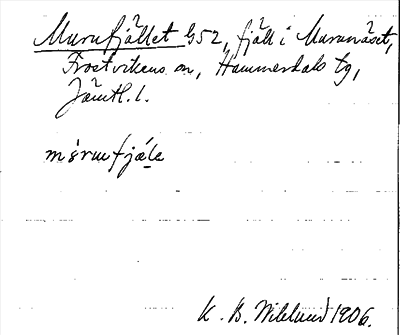 Murufjället G52, fjäll i Murunäset,
Frostvikens sn, Hammerdals tg,
Jämtl. l.
mŭrmfjäle
K. B. Wiklund 1906.